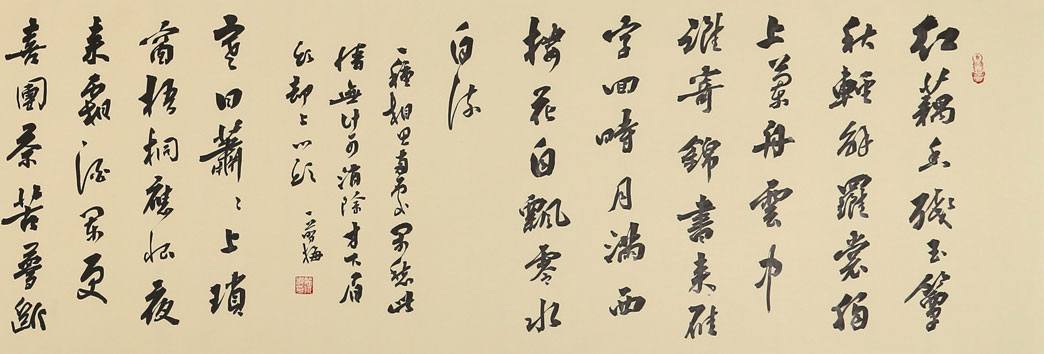 紅藕香殘玉簟
秋輕解羅裳獨
上蘭舟雲中
誰寄錦書來雁
字回時月滿西
樓花自飄零水
自流
一種相思兩處閒愁此
情無計可消除才下眉
頭却上心頭 一剪梅
寒日蕭〻上瑣
窗梧桐應恨夜
來霜酒闌更
喜團茶苦夢斷